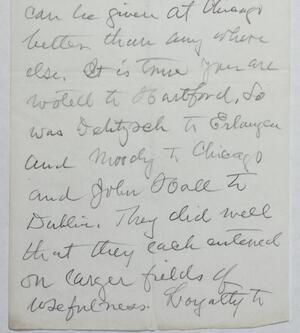 can be given at Chicago
better than any where
else. It is true you are
wedded to Hartford. So
was Delitzsch to Erlangen
and Moody to Chicago
and John Hall to
Dublin. They did well
that they each entered
on larger fields of
usefulness. Loyalty to